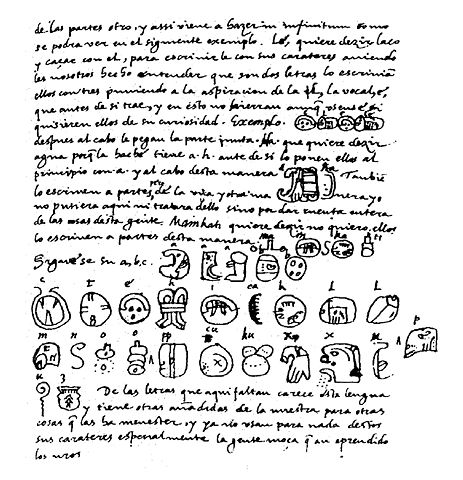 de las partes otro, y assi viene a hazer in infinitum como
se podra ver en el siguiente exemplo. Lé, quiere dezir laço
y caçar con el, para escrivirle con sus carateres aviendo
les nosotros hecho entender que son dos letras lo escrivian
ellos con tres puniendo a la aspiracion de la l, la vocal, é,
que antes de si trae, y en esto no hierran aunq usense, si
quisieren ellos de su curiosidad. Exemplo. e l e lé
despues al cabo le pegan la parte junta. Ha que quiere dezir
agua porq la hache tiene a. h. ante de si lo ponen ellos al
principio con a. y al cabo desta manera a ha Tambié
lo escriven a partes, de la una y otra ma nera yo
no pusiera aqui ni tratara dello sino por dar cuenta entera
de las cosas desta gente. Mamkati quiere dezir no quiero, ellos
lo escriven a partes desta manera ma i n ka ti
Siguese su a, b, c. a a a b b
c t e h i ca k l l
m n o o pp cu ku x x u p
u z De las letras que aqui faltan carece esta lengua
y tiene otras añadidas de la nuestra para otras
cosas q las ha menester, y ya no usan para nada destos
sus carateres especialmente la gente moça q an aprendido
los nros